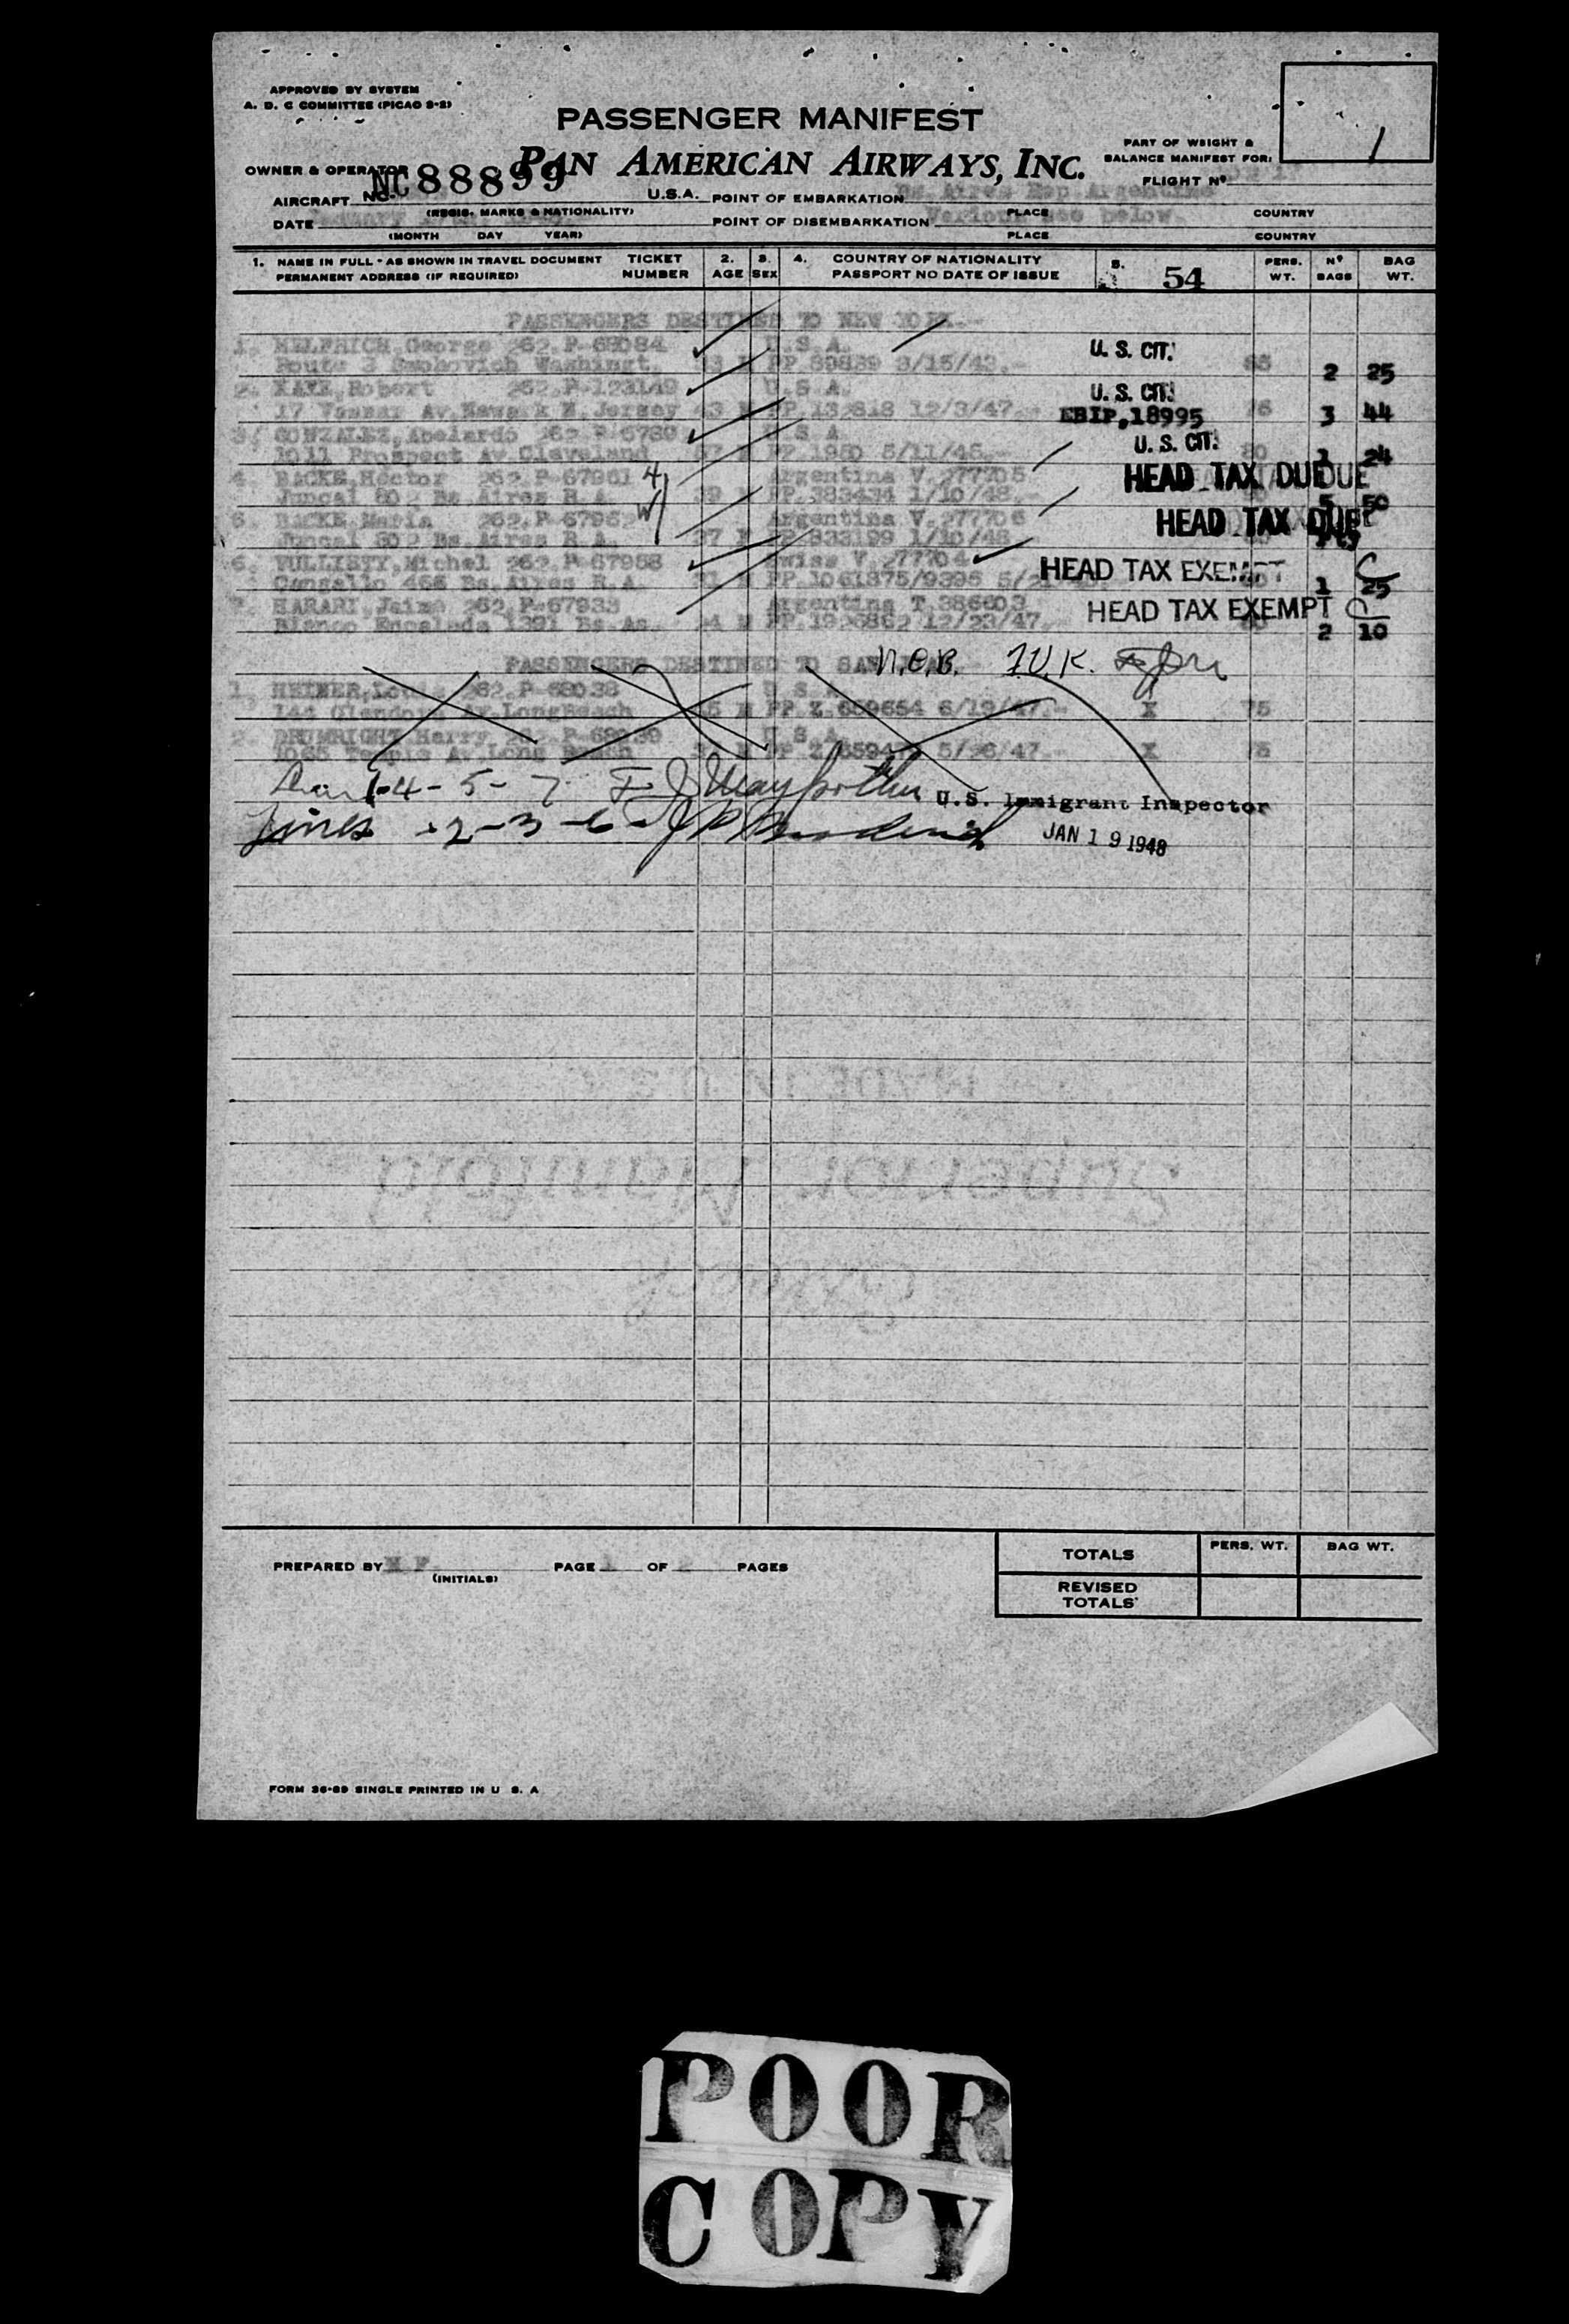 APPROVED BY SYSTEM
A. D. C COMMITTEE (PICAO 9-2)
PASSENGER MANIFEST
PART OF WEIGHT &
BALANCE MANIFEST FOR:
OWNER & OPERATOR
PAN AMERICAN AIRWAYS, INC.
FLIGHT Nº
AIRCRAFT NO. NC88899 U.S.A. POINT OF EMBARKATION Bs. Aires
(REGIS. MARKS & NATIONALITY) PLACE COUNTRY
DATE POINT OF DISEMBARKATION Various see below
(MONTH DAY YEAR) PLACE COUNTRY
1. NAME IN FULL - AS SHOWN IN TRAVEL DOCUMENT TICKET 2. 3. 4. COUNTRY OF NATIONALITY 5. 54 PERS. Nº BAG
PERMANENT ADDRESS (IF REQUIRED) NUMBER AGE SEX PASSPORT NO DATE OF ISSUE WT. BAGS WT.
PASSENGERS DESTINED TO NEW YORK.-
1. HELFRICH, George 262.P-68084 U.S.A. U. S. CIT.
Route 3 Washingt. M PP. 89839 3/15/43.- 2 25
2. KAYE, Robert 262.P-123149 U.S.A. U. S. CIT.
17 Vassar Av. Newark N. Jersey 43 M PP. 132618 12/3/47.- EBIP,18995 3 44
3. GONZALEZ, Abelardo 262 U.S.A. U. S. CIT.
1011 Prospect Av. Cleveland M PP. 1950 5/11/45.- 1 24
4. BACKE, Hector 262.P-67961 4 Argentina V. 277705 HEAD TAX DUE
Juncal 802 Bs. Aires R.A. 39 M PP. 383434 1/10/48.- 5 50
5. BACKE, Maria 262.P-67962 W Argentina V. 277706 HEAD TAX DUE
Juncal 802 Bs. Aires R.A. 37 F PP. 333199 1/10/48.-
6. VULLIETY, Michel 262.P-67958 Swiss V. 277704 HEAD TAX EXEMPT C
Cangallo 466 Bs. Aires R.A. 31 M PP. 1061875/9395 1 25
7. HARARI, Jaime 262.P-67933 Argentina T. 386603 HEAD TAX EXEMPT C
Blanco Encalada 1391 Bs. As. 24 M PP. 1926862 12/23/47.- 2 10
PASSENGERS DESTINED TO SAN N.O.B. I.U.K.
1. HEINER, Louis 262.P-68038 U.S.A.
144 Glendora Av. LongBeach M PP. Z.659654 6/19/47.- X 75
2. DRUMRIGHT, Harry 262.P-68039 U.S.A.
1065 Temple Av. Long Beach M PP. 5/26/47.- X 75
1-4-5-7
U.S. Immigrant Inspector
Lines -2-3-6
JAN 19 1948
MADE IN U.S.
Superior Manifold
PREPARED BY PAGE 1 OF 2 PAGES
(INITIALS)
TOTALS PERS. WT. BAG WT.
REVISED
TOTALS
FORM 36-89 SINGLE PRINTED IN U S. A
POOR
COPY